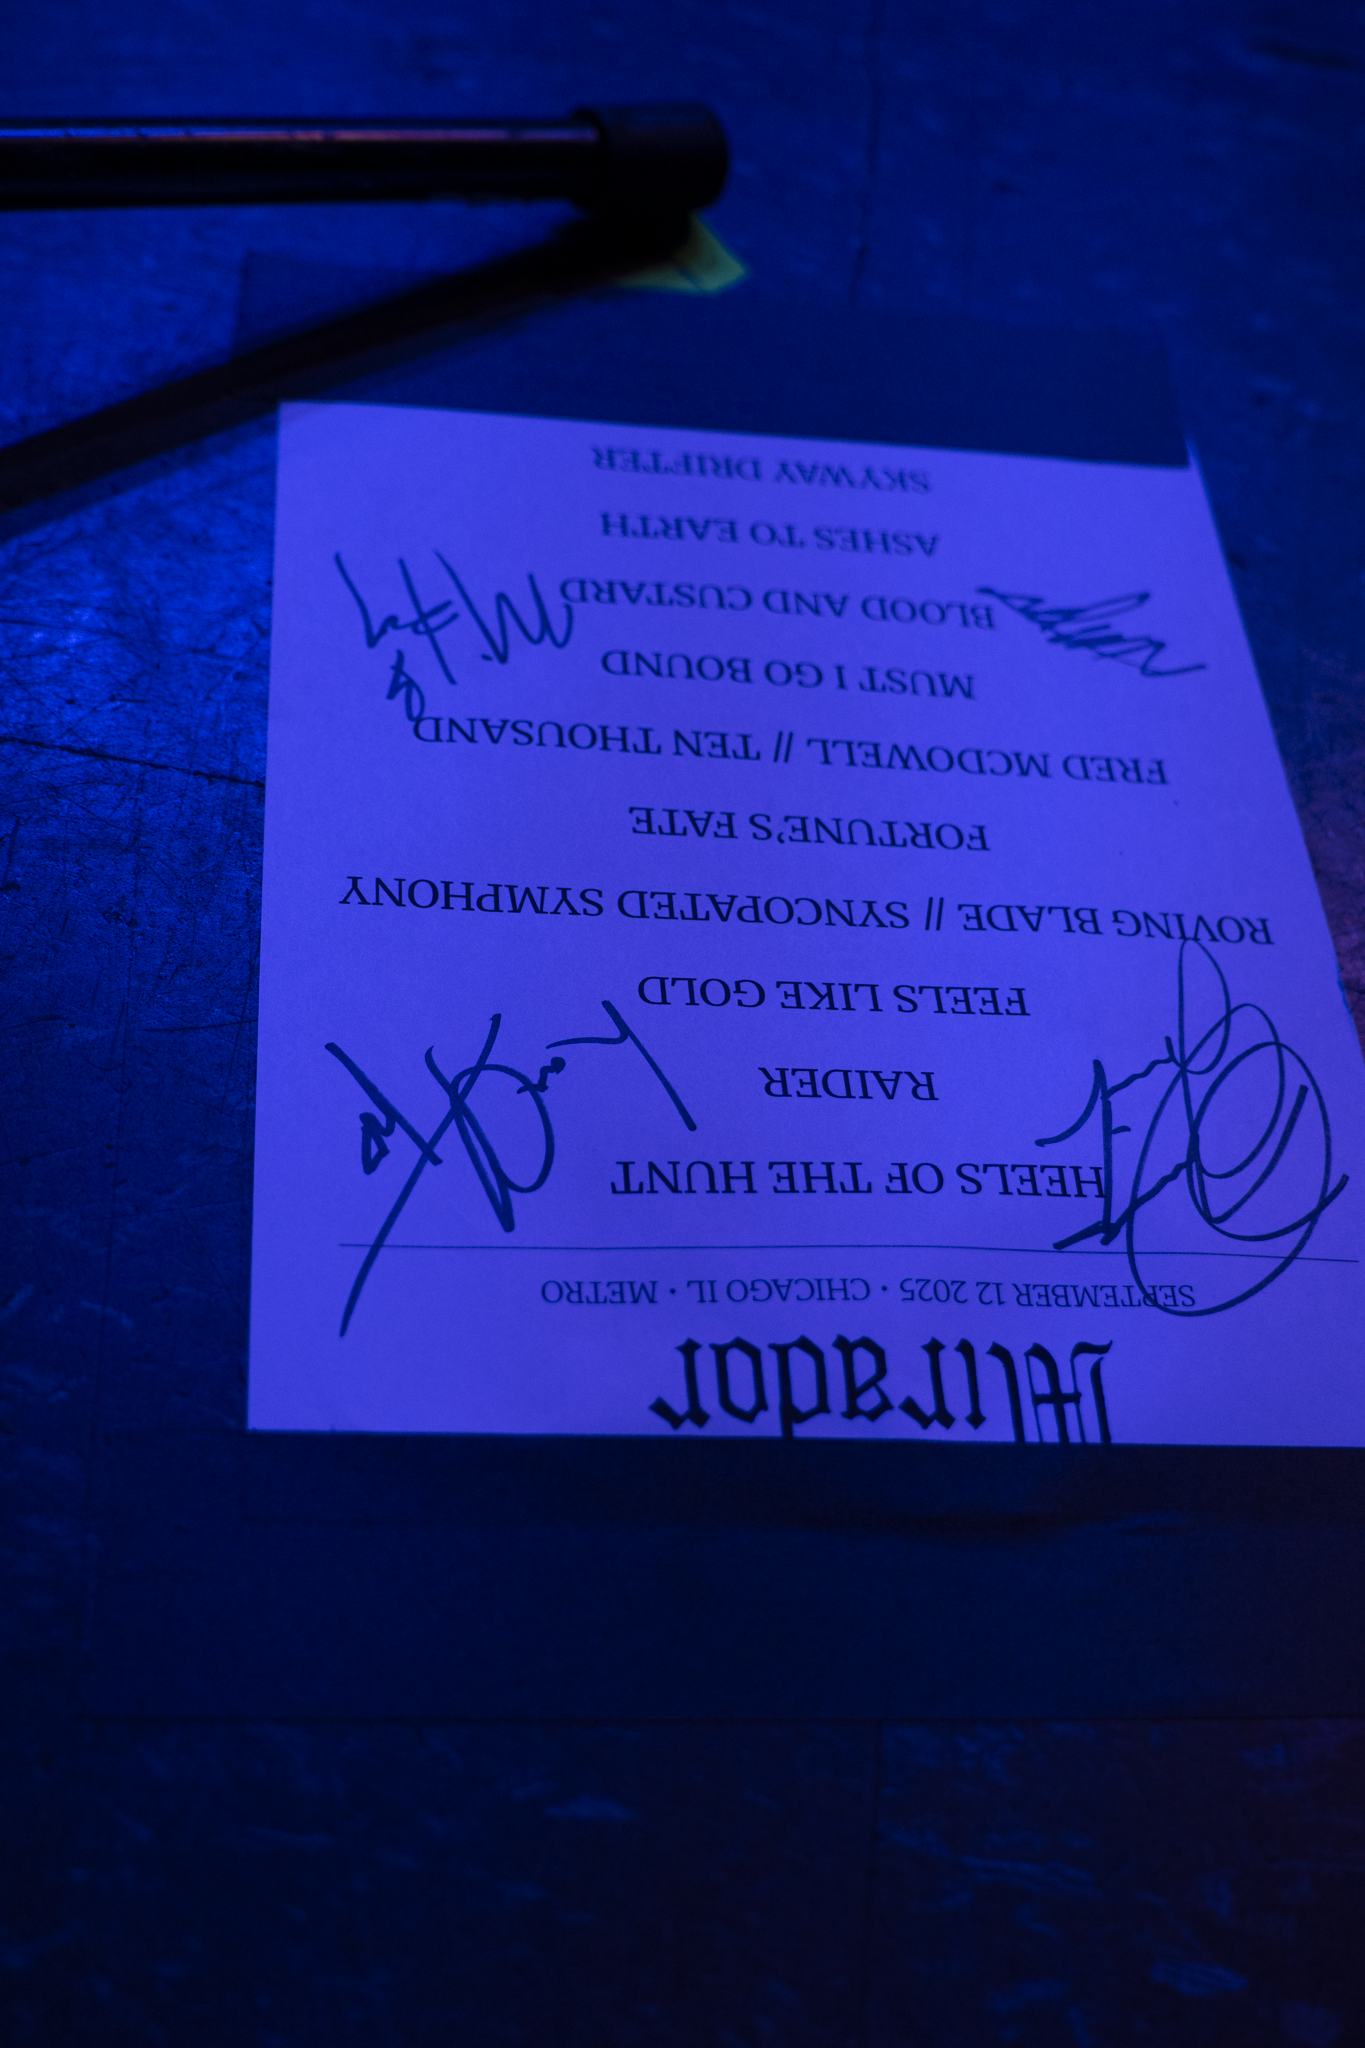 Mirador
SEPTEMBER 12 2025 · CHICAGO IL · METRO
HEELS OF THE HUNT
RAIDER
FEELS LIKE GOLD
ROVING BLADE // SYNCOPATED SYMPHONY
FORTUNE'S FATE
FRED MCDOWELL // TEN THOUSAND
MUST I GO BOUND
BLOOD AND CUSTARD
ASHES TO EARTH
SKYWAY DRIFTER